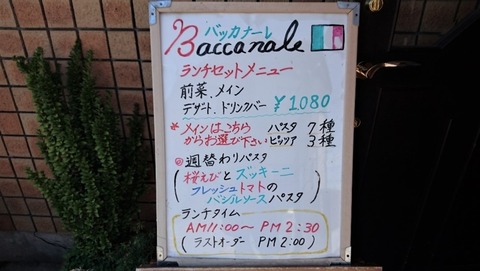 バッカナーレ
Baccanale
ランチセットメニュー
前菜、メイン
デザート、ドリンクバー ¥1080
*メインはこちら パスタ 7種
からお選び下さい ピッツァ 3種
◎週替わりパスタ
(桜えびとズッキーニ
フレッシュトマトの
バジルソースパスタ)
ランチタイム
AM11:00〜PM2:30
(ラストオーダー PM2:00)